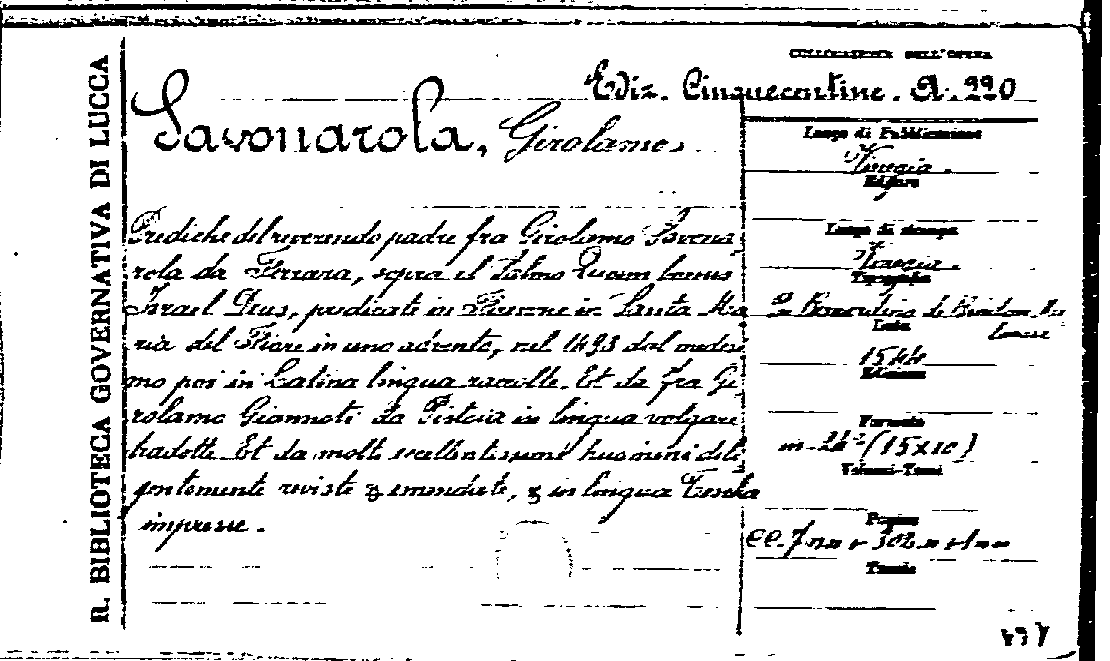 R. BIBLIOTECA GOVERNATIVA DI LUCCA
COLLOCAZIONE DELL'OPERA
Ediz. Cinquecentine. A. 220
Savonarola, Girolamo.
Prediche del reverendo padre fra Girolamo Savona
rola da Ferrara, sopra il Salmo Quam bonus
Israel Deus, predicate in Firenze in Santa Ma
ria del Fiore in uno advento, nel 1493 dal medesi
mo poi in Latina lingua raccolte. Et da fra Gi
rolamo Giannoti da Pistoia in lingua volgare
tradotte. Et da molti eccellentissimi huomini dili
gentemente reviste & emendate, & in lingua Toscha
impresse.
Luogo di Pubblicazione
Vinegia.
Editore
Luogo di stampa
Vinegia.
Tipografo
Bernardino de Bindoni Mi
lanese
Data
1544
Edizione
Formato
in-24° (15x10)
Volumi-Tomi
Pagine
Tavole